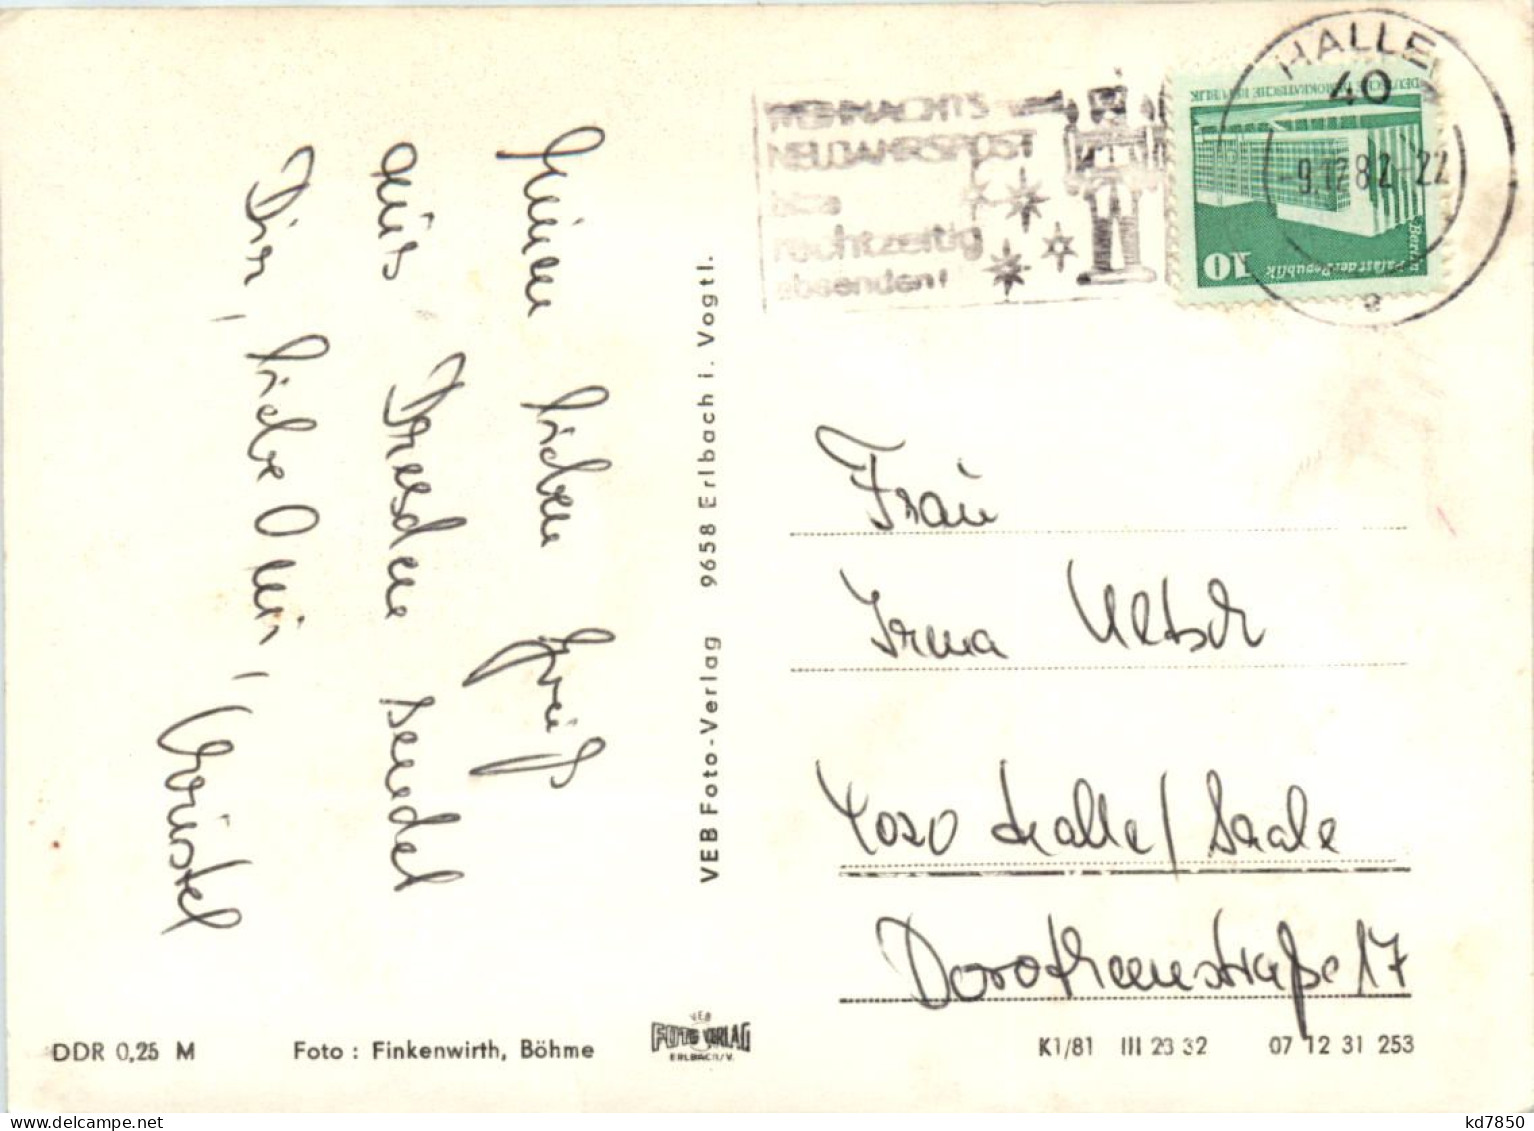 Einen lieben Gruß
aus Dresden sendet
Dir, liebe Omi,
Christel
VEB Foto-Verlag 9658 Erlbach i. Vogtl.
WEIHNACHTS- und
NEUJAHRSPOST
bitte
rechtzeitig
absenden!
HALLE
40
-9.12.82-22
e
DEUTSCHE DEMOKRATISCHE REPUBLIK
10
Berlin
Palast der Republik
Frau
Irma
4020 Halle/Saale
Dorotheenstraße 17
DDR 0,25 M
Foto: Finkenwirth, Böhme
VEB
FOTO VERLAG
ERLBACH/V.
K1/81 III 23 32 07 12 31 253
delcampe.net
kd7850